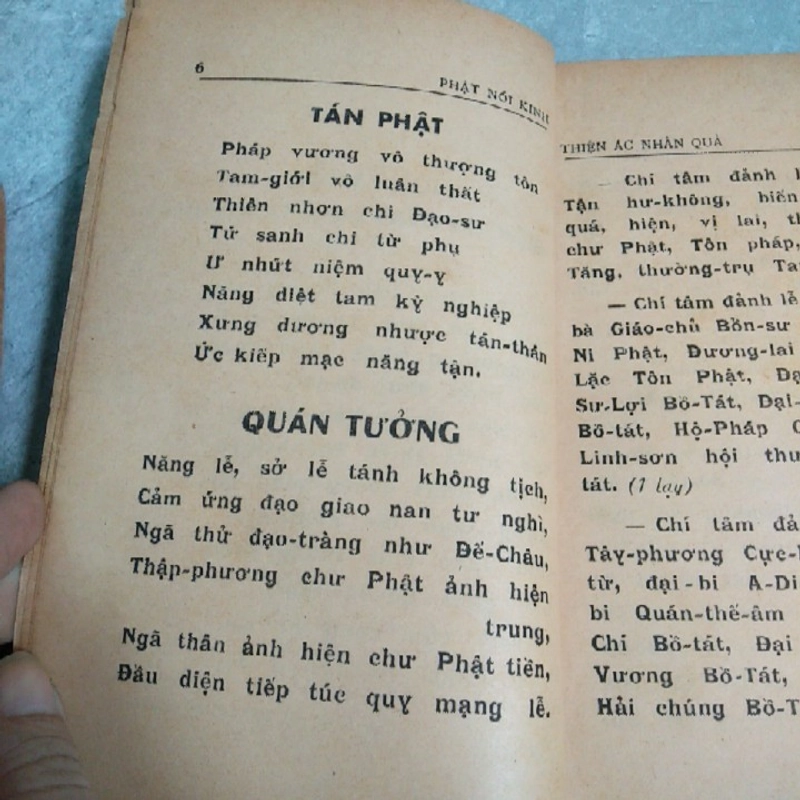 6
PHẬT NÓI KINH
TÁN PHẬT
Pháp vương vô thượng tôn
Tam-giới vô luân thất
Thiên nhơn chi Đạo-sư
Tứ sanh chi từ phụ
Ư nhứt niệm quy-y
Năng diệt tam kỳ nghiệp
Xưng dương nhược tán-thán
Ức kiếp mạc năng tận.
QUÁN TƯỞNG
Năng lễ, sở lễ tánh không tịch,
Cảm ứng đạo giao nan tư nghì,
Ngã thử đạo-tràng như Đế-Châu,
Thập-phương chư Phật ảnh hiện
trung,
Ngã thân ảnh hiện chư Phật tiền,
Đầu diện tiếp túc quy mạng lễ.
THIỆN ÁC NHÂN QUẢ
— Chí tâm đảnh
Tận hư-không, biến
quá, hiện, vị lai,
chư Phật, Tôn pháp,
Tăng, thường-trụ
— Chí tâm đảnh lễ
bà Giáo-chủ Bổn-sư
Ni Phật, Đương-lai
Lặc Tôn Phật,
Sư-Lợi Bồ-Tát, Đại-
Bồ-tát, Hộ-Pháp
Linh-sơn hội
tát. (1 lạy)
— Chí tâm
Tây-phương
từ, đại-bi A-Di
bi Quán-thế-âm
Chí Bồ-tát, Đại
Vương Bồ-Tát,
Hải chúng